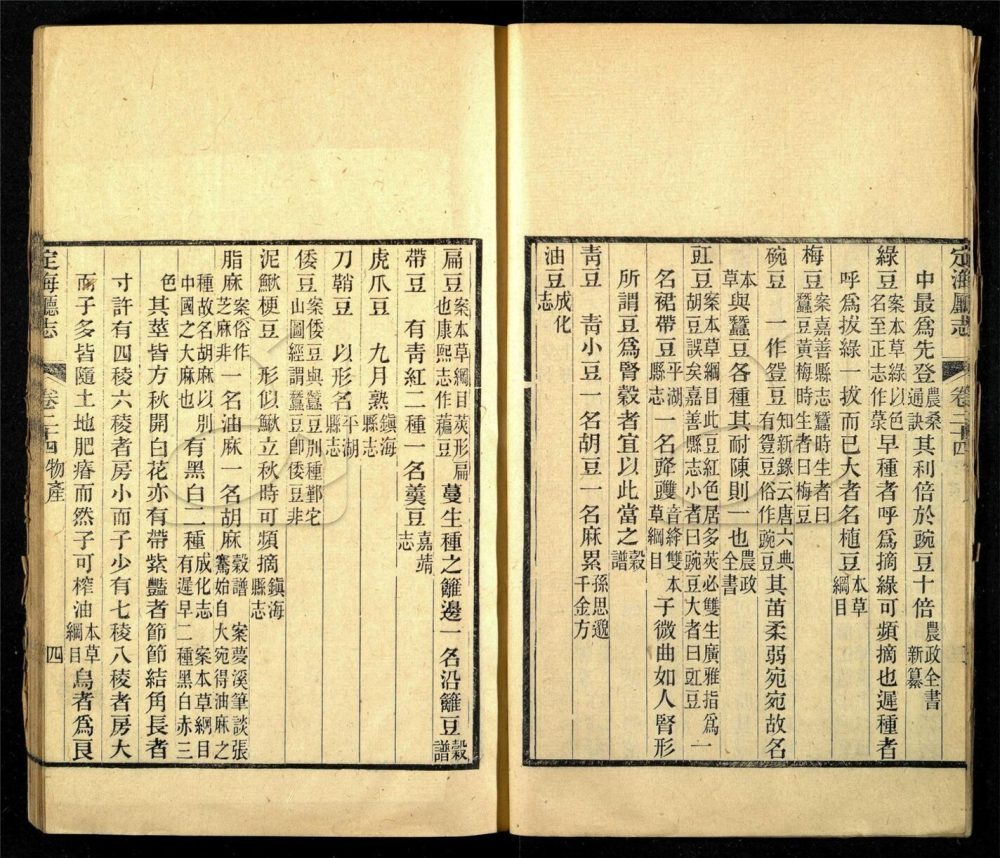 定海廳志　卷二十四
中最爲先登農桑通訣其利倍於豌豆十倍農政全書新纂
綠豆案本草綠以色名至正志作菉早種者呼爲摘綠可頻摘也遲種者
呼爲拔綠一拔而已大者名植豆本草綱目
梅豆案嘉善縣志蠶時生者曰蠶豆黃梅時生者曰梅豆
碗豆　一作豋豆知新錄云唐六典有豋豆俗作豌豆其苗柔弱宛宛故名
本草與蠶豆各種其耐陳則一也農政全書
豇豆案本草綱目此豆紅色居多莢必雙生廣雅指爲胡豆誤矣嘉善縣志小者曰豌豆大者曰豇豆一
名裙帶豆平湖縣志一名䜶䝄音絳雙本草綱目子微曲如人腎形
所謂豆爲腎穀者宜以此當之穀譜
靑豆　靑小豆一名胡豆一名麻累孫思邈千金方
油豆成化志
扁豆案本草綱目莢形扁也康熙志作穲豆蔓生種之籬邊一名沿籬豆穀譜
帶豆　有靑紅二種一名羹豆嘉靖志
虎爪豆　九月熟鎭海縣志
刀鞘豆　以形名平湖縣志
倭豆案倭豆與蠶豆別種鄞它山圖經謂蠶豆卽倭豆非
泥鰍梗豆　形似鰍立秋時可頻摘鎭海縣志
脂麻案俗作芝麻非一名油麻一名胡麻穀譜　案夢溪筆談張騫始自大宛得油麻之
種故名胡麻以別中國之大麻也　有黑白二種成化志　案本草綱目有遲早二種黑白赤三
色其莖皆方秋開白花亦有帶紫豔者節節結角長者
寸許有四稜六稜者房小而子少有七稜八稜者房大
而子多皆隨土地肥瘠而然子可榨油本草綱目烏者爲良
定海廳志　卷二十四物產　四